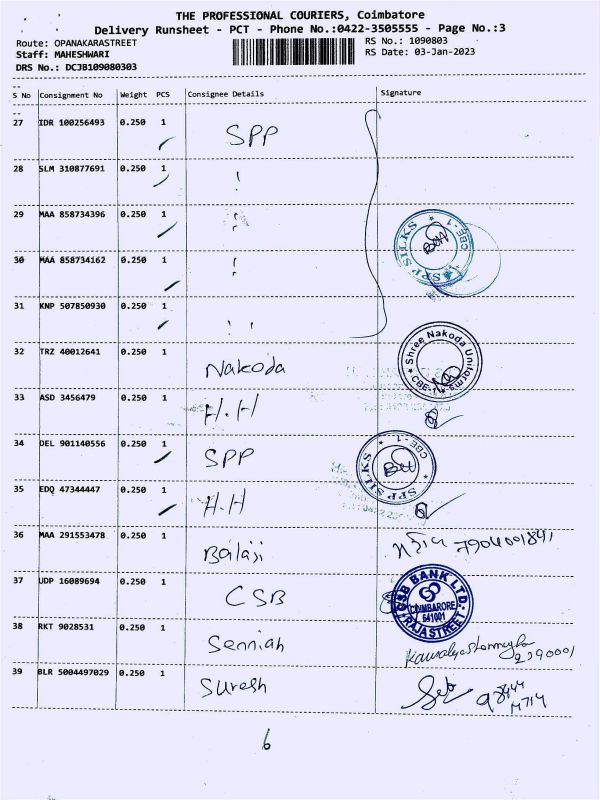 THE PROFESSIONAL COURIERS, Coimbatore
Delivery Runsheet - PCT - Phone No.:0422-3505555 - Page No.:3
Route: OPANAKARASTREET RS No.: 1090803
Staff: MAHESHWARI RS Date: 03-Jan-2023
DRS No.: DCJB109080303
S No Consignment No Weight PCS Consignee Details Signature
27 IDR 100256493 0.250 1 SPP
28 SLM 310877691 0.250 1
29 MAA 858734396 0.250 1
SPP SILKS * CBE-1 *
30 MAA 858734162 0.250 1
31 KNP 507850930 0.250 1
32 TRZ 40012641 0.250 1 Nakoda
* Shree Nakoda Uniforms * CBE-1
33 ASD 3456479 0.250 1 H.H
34 DEL 901140556 0.250 1 SPP
SPP SILKS * CBE-1 *
35 EDQ 47344447 0.250 1 H.H
36 MAA 291553478 0.250 1 Balaji 7904001841
37 UDP 16089694 0.250 1 CSB
CSB BANK LTD.
COIMBARORE
641001
RAJA STREET
38 RKT 9028531 0.250 1 Senniah
2390001
39 BLR 5004497029 0.250 1 Suresh
6